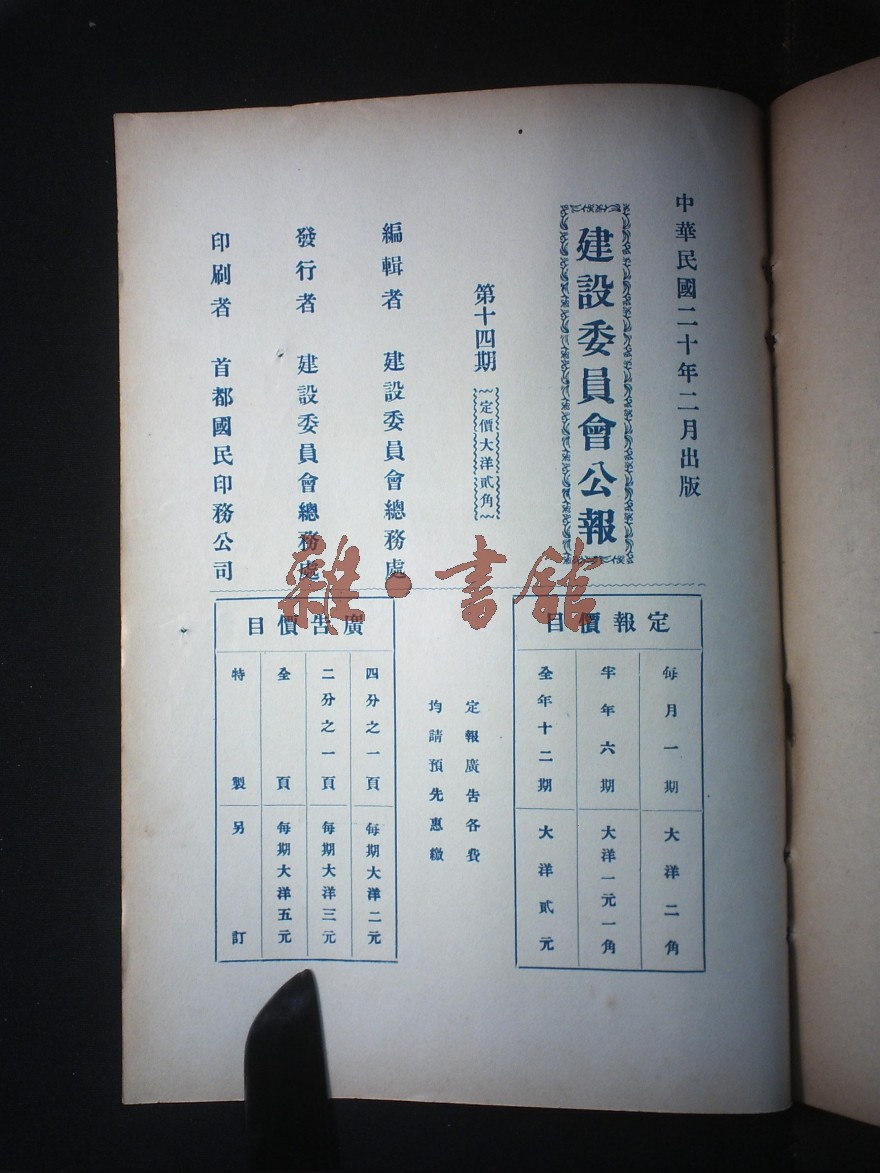 中華民國二十年二月出版
建設委員會公報
第十四期
定價大洋貳角
編輯者 建設委員會總務處
發行者 建設委員會總務處
印刷者 首都國民印務公司
定報價目
每月一期 大洋二角
半年六期 大洋一元一角
全年十二期 大洋貳元
定報廣告各費
均請預先惠繳
廣告價目
四分之一頁 每期大洋二元
二分之一頁 每期大洋三元
全頁 每期大洋五元
特製 另訂
雜·書館